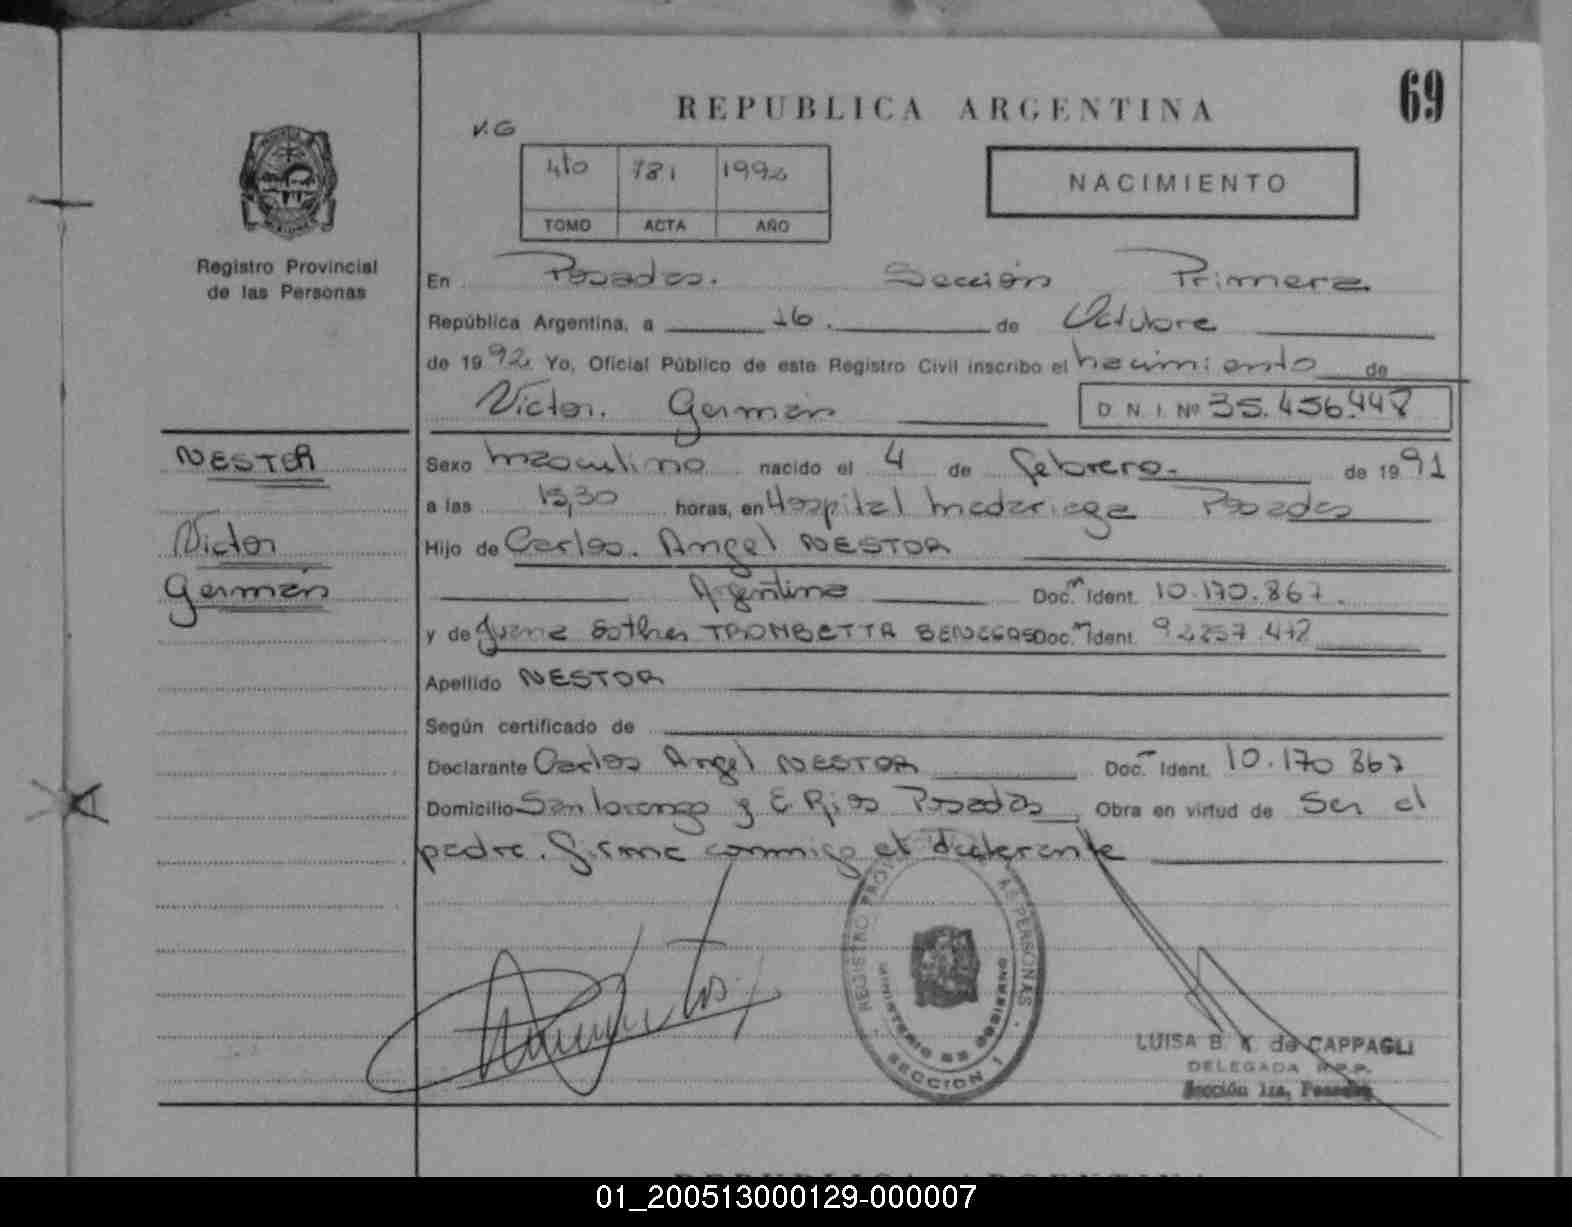 REPUBLICA ARGENTINA
69
V.G
4to 781 1992
TOMO ACTA AÑO
NACIMIENTO
Registro Provincial
de las Personas
En Posadas. Sección Primera
República Argentina, a 16. de Octubre
de 1992. Yo, Oficial Público de este Registro Civil inscribo el nacimiento de
Victor. Germán D. N. I. Nº 35.456.447
NESTOR
Sexo masculino nacido el 4 de febrero. de 1991
a las 13,30 horas, en Hospital Madariaga Posadas
Victor
Hijo de Carlos. Angel NESTOR
Germán
Argentina Doc. Ident. 10.170.867.
y de Juana Esther TROMBETTA BENEGAS Doc. Ident.
Apellido NESTOR
Según certificado de
Declarante Carlos Angel NESTOR Doc. Ident. 10.170 867
Domicilio San Lorenzo y E. Rios Posadas Obra en virtud de Ser el
padre. Firma conmigo el declarante
REGISTRO PROV. PERSONAS
MINISTERIO DE GOBIERNO
SECCION 1
LUISA B. K. de CAPPAGLI
DELEGADA R.P.P.
Sección 1ra, Posadas
REPUBLICA ARGENTINA
01_200513000129-000007